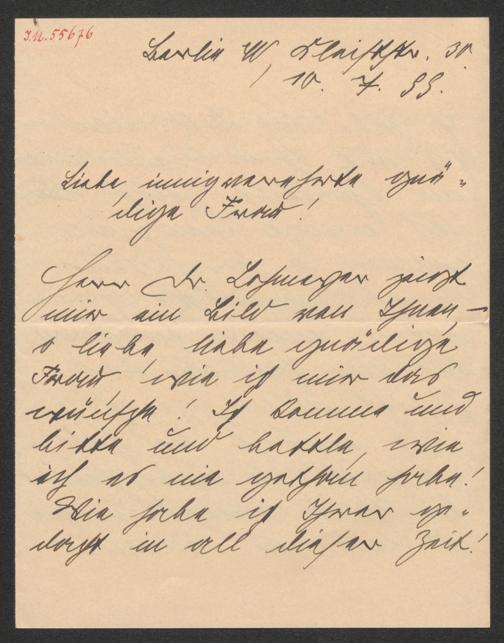 I.N. 55676
Berlin W, Kleiststr. 30
10. 7. 99.
Liebe, innigverehrte gnä-
dige Frau!
Herr Dr. Lohmeyer zeigt
mir ein Bild von Ihnen, –
o liebe, liebe gnädige
Frau, wie ich mir das
wünsche! Ich komme und
bitte und bettle, wie
ich es nie gethan habe!
Wie habe ich Ihrer ge-
dacht in all dieser Zeit!